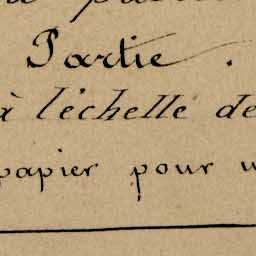 Partie.
à l'échelle de
papier pour